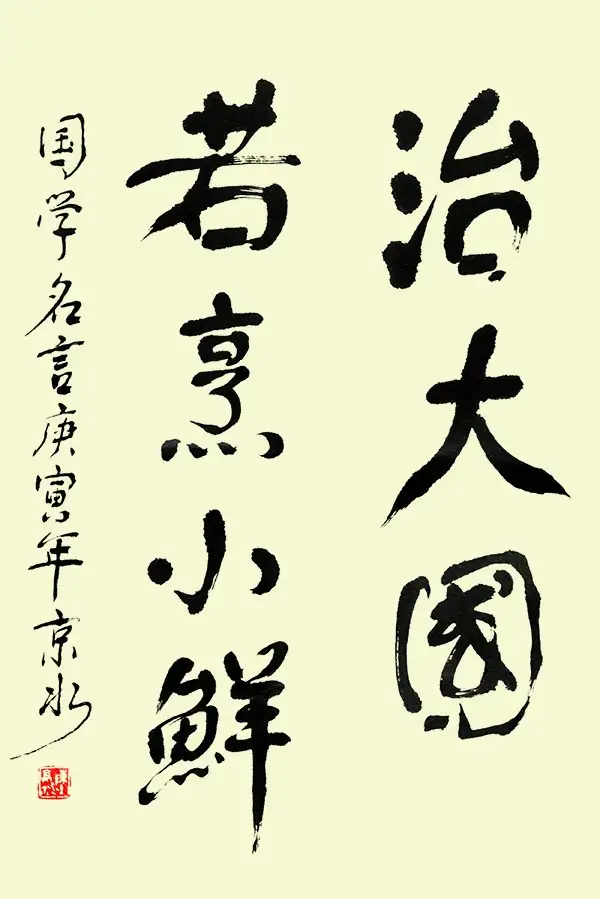 治大國
若烹小鮮
国学名言庚寅年京水